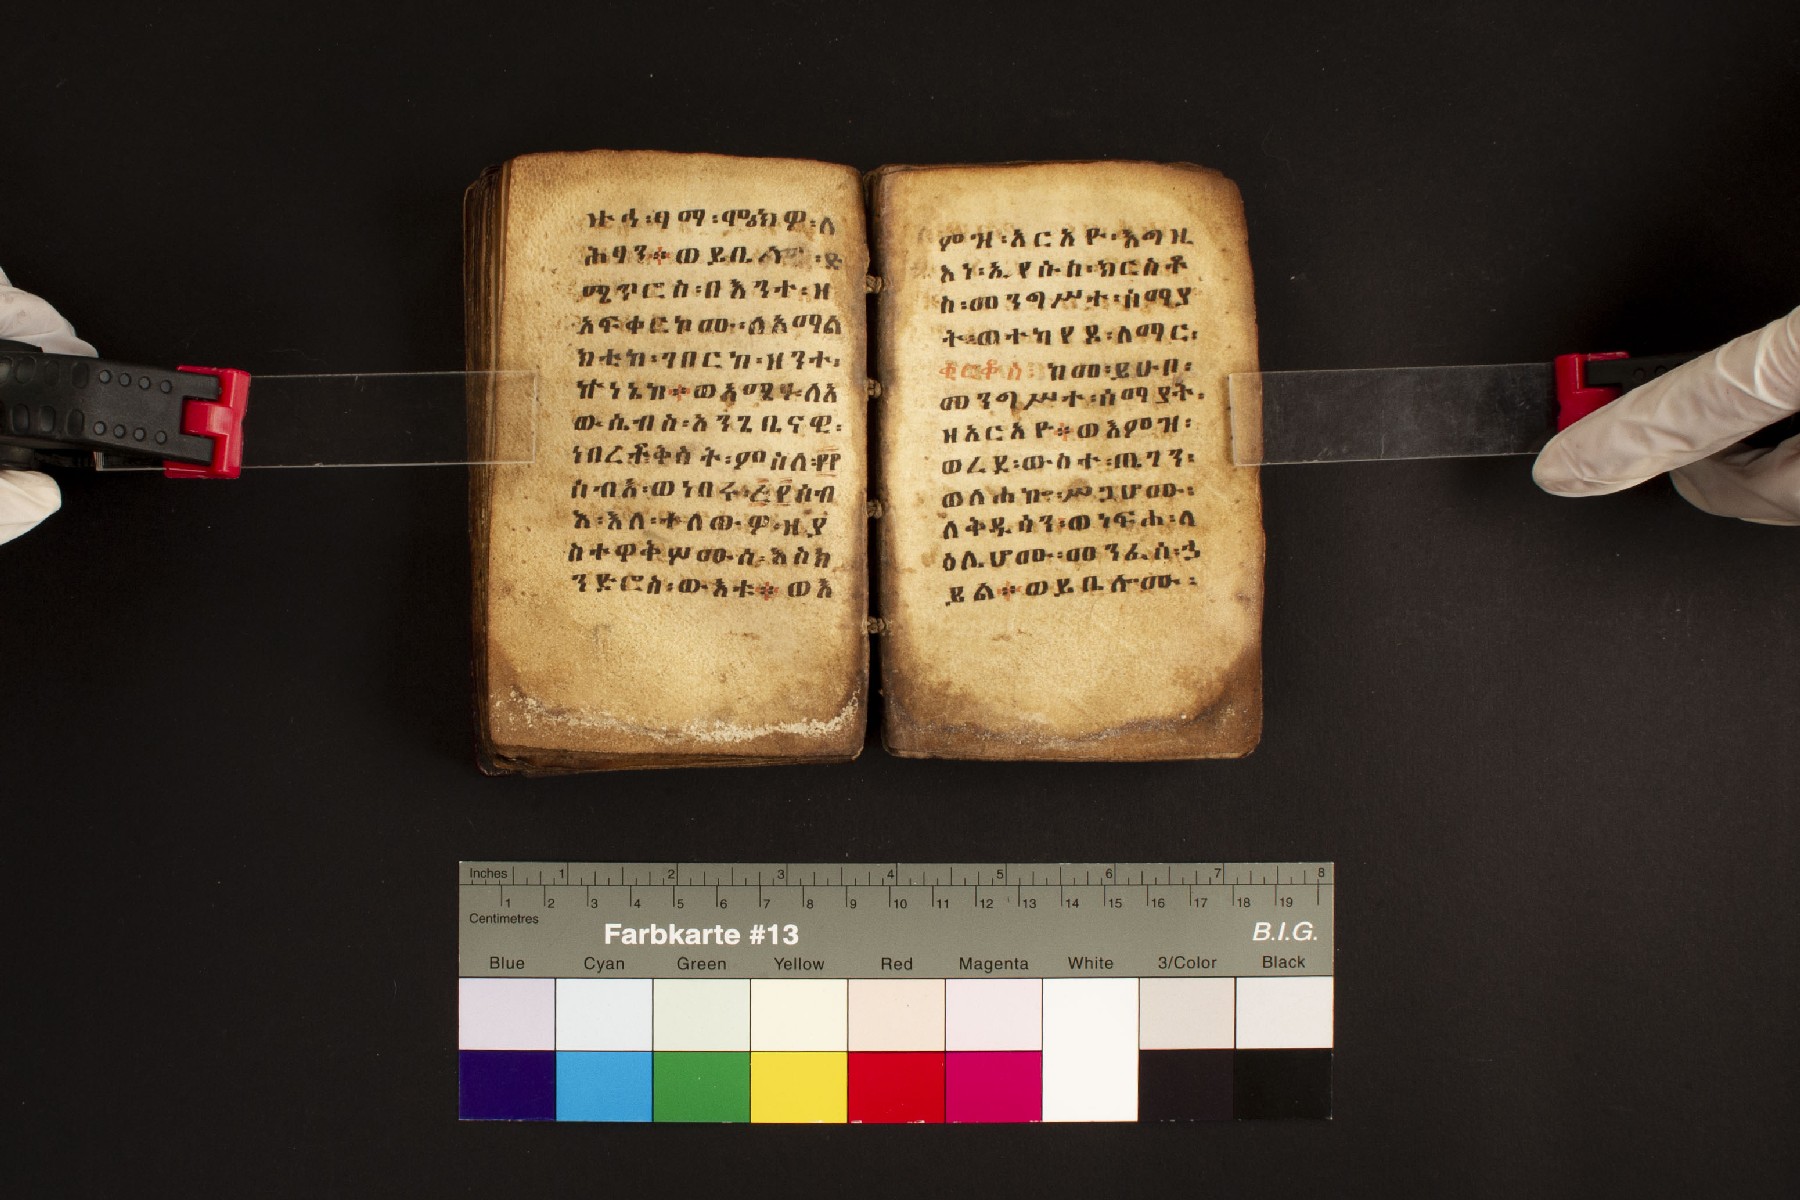 ሕፃን፨ወይቤ
ሜጥሮስ፡በእንተ፡ዘ
አፍቀርኮሙ፡ለአማል
ክቲከ፡ገበርከ፡ዘንተ፡
ኵነኔከ፨ወእምዝ፡ለአ
ው፡ሴብስ፡እንጊቤናዊ፡
ነበረ፡ቅስት፡ምስለ፡፸፻
ሰብእ፡ወነበሩ፡፪፻ሰብ
እ፡እለ፡ተለው፡ዎ፡ዘያ
ስተዋቅሦሙ፡ለ፡እስክ
ንድሮስ፡ውእቱ፨ወእ
ምዝ፡አርአዮ፡እግዚ
እነ፡ኢየሱስ፡ክርስቶ
ስ፡መንግሥተ፡ሰማያ
ት፡ጠተካየዶ፡ለማር፡
ቂርቆስ፡ከመ፡ይሁቦ፡
መንግሥተ፡ሰማያት፡
ዘአርአዮ፨ወእምዝ፡
ወረደ፡ውስተ፡ጢገን፡
ወለሐኮ፡ሥጋሆሙ፡
ለቅዱሳን፡ወነፍሐ፡ላ
ዕሌሆሙ፡መንፈስ፡ኃ
ይል፨ወይቤሎሙ፡
Inches 1 2 3 4 5 6 7 8
1 2 3 4 5 6 7 8 9 10 11 12 13 14 15 16 17 18 19
Centimetres
Farbkarte #13 B.I.G.
Blue Cyan Green Yellow Red Magenta White 3/Color Black